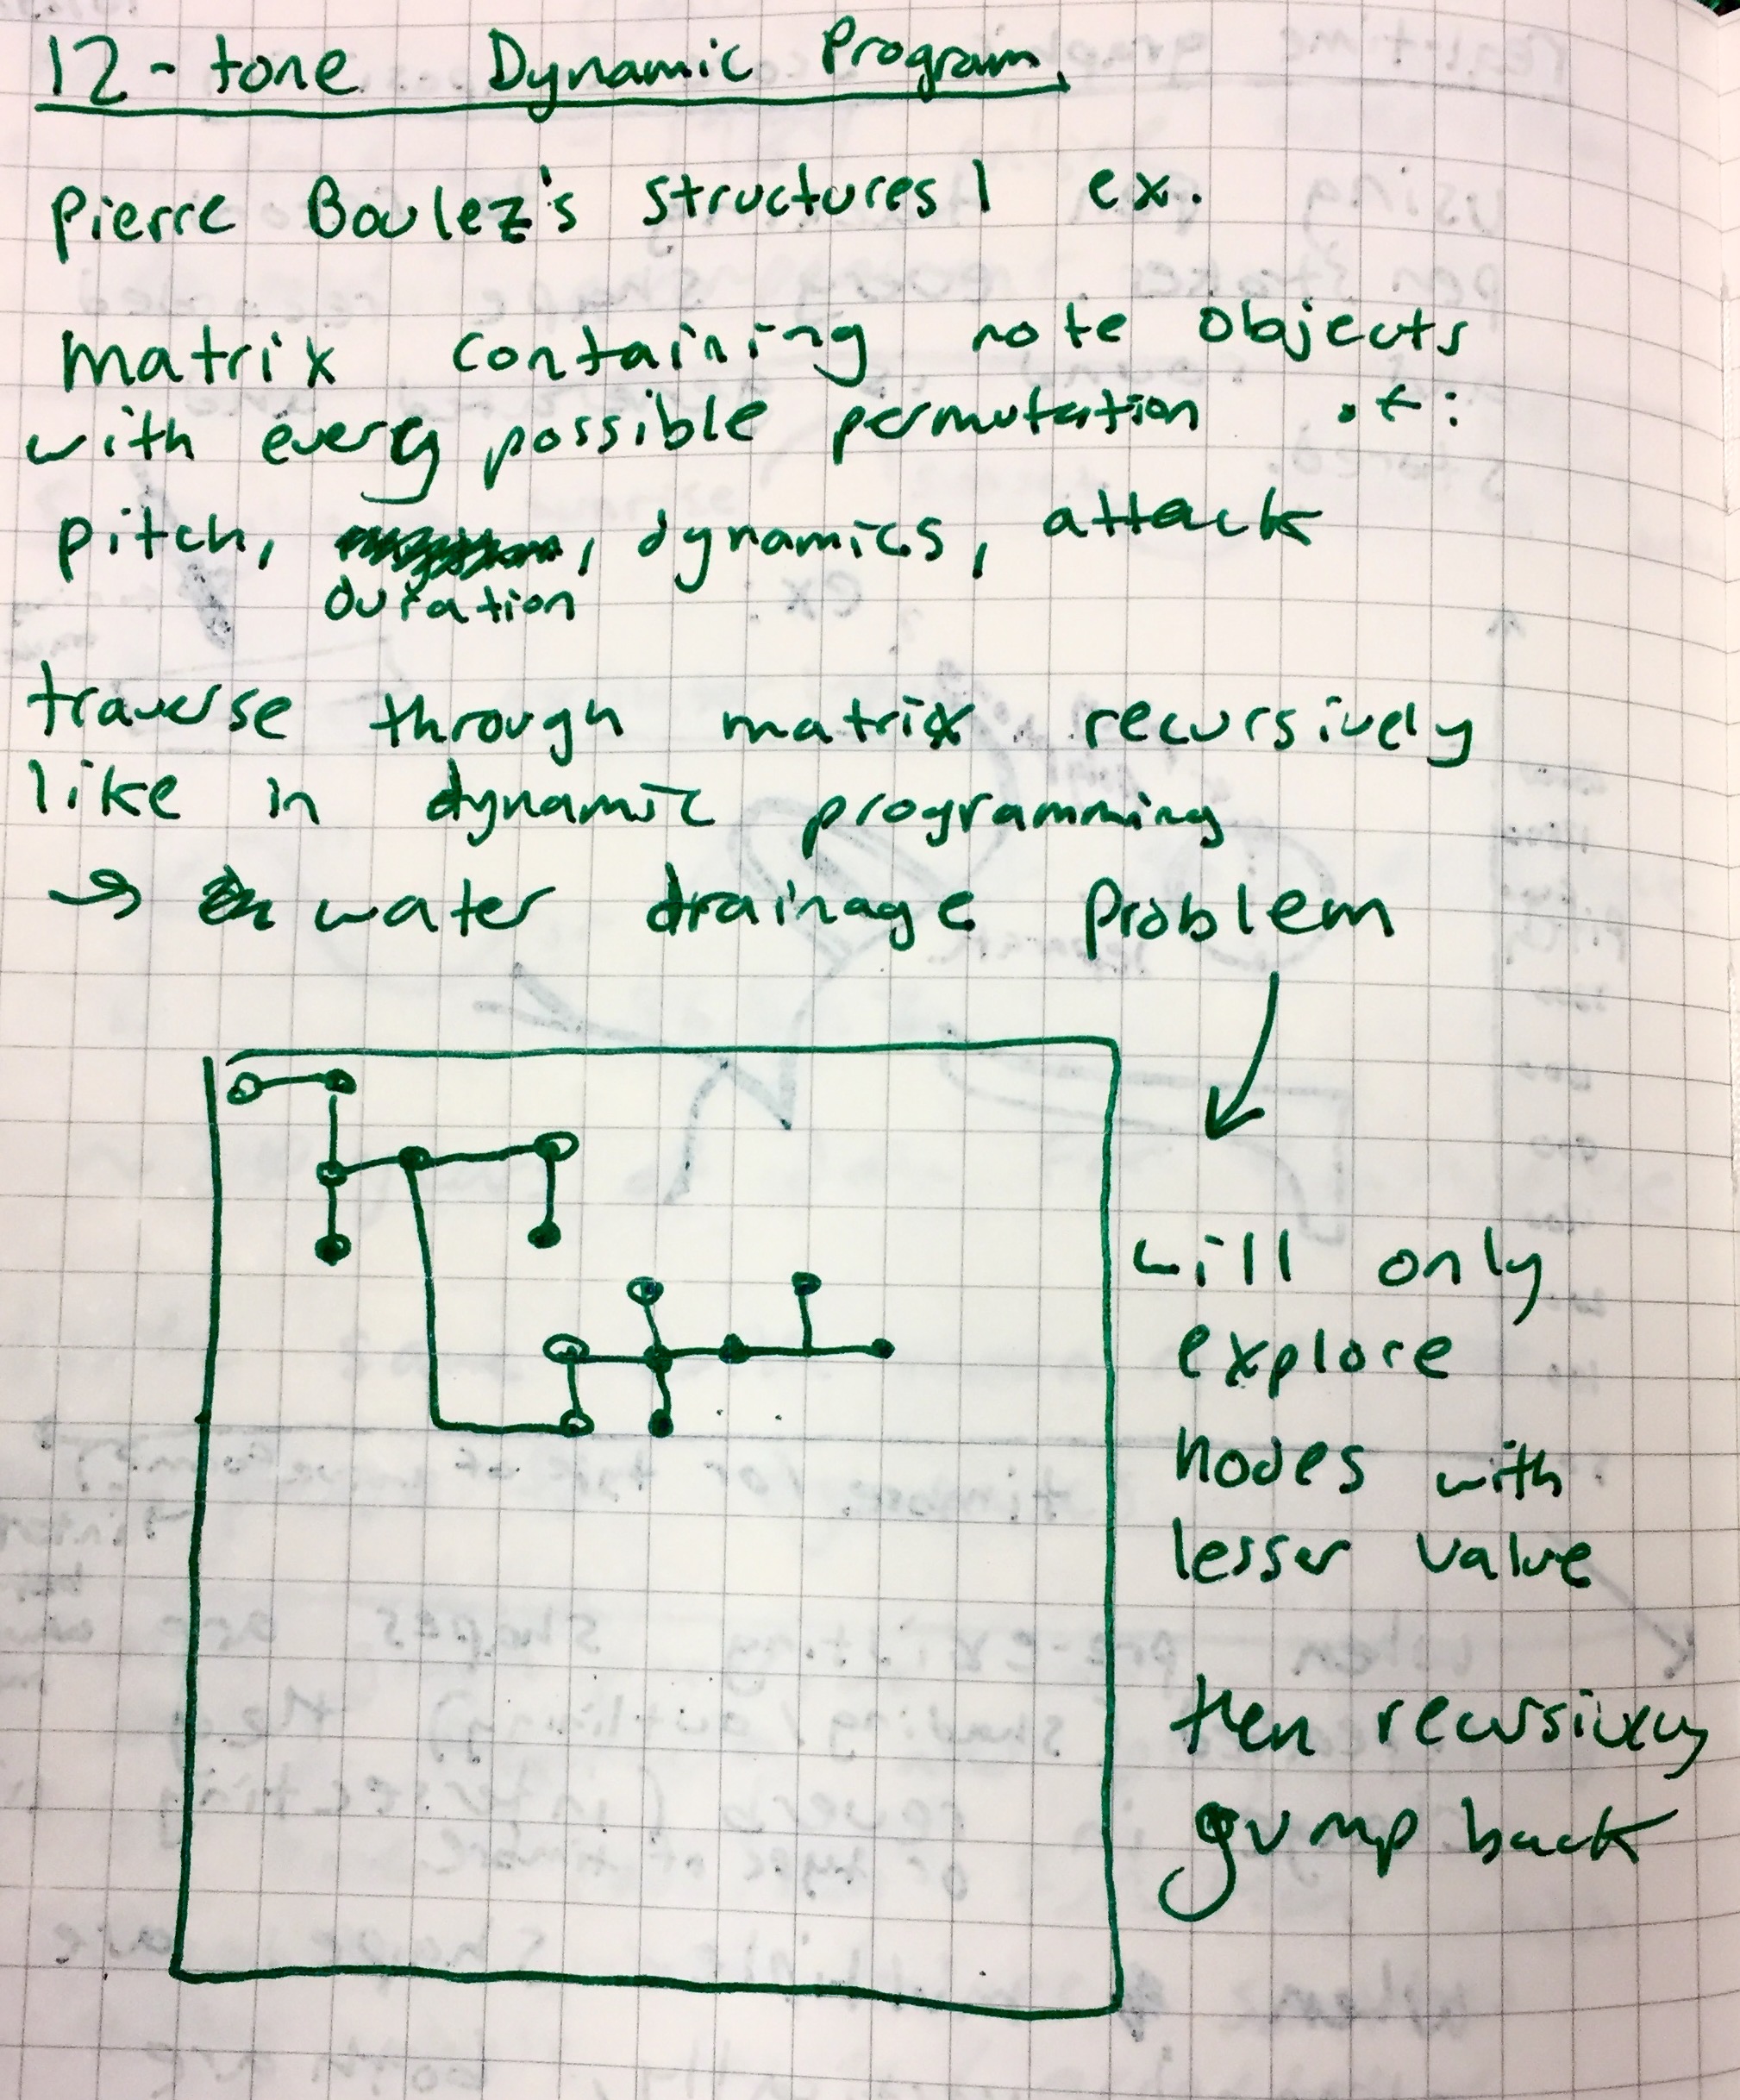 12-tone Dynamic Program.
Pierre Boulez's structures 1 ex.
Matrix containing note objects
with every possible permutation of:
pitch, , dynamics, attack
duration
traverse through matrix recursively
like in dynamic programming
→ water drainage problem
will only
explore
nodes with
lesser value
then recursivly
jump back